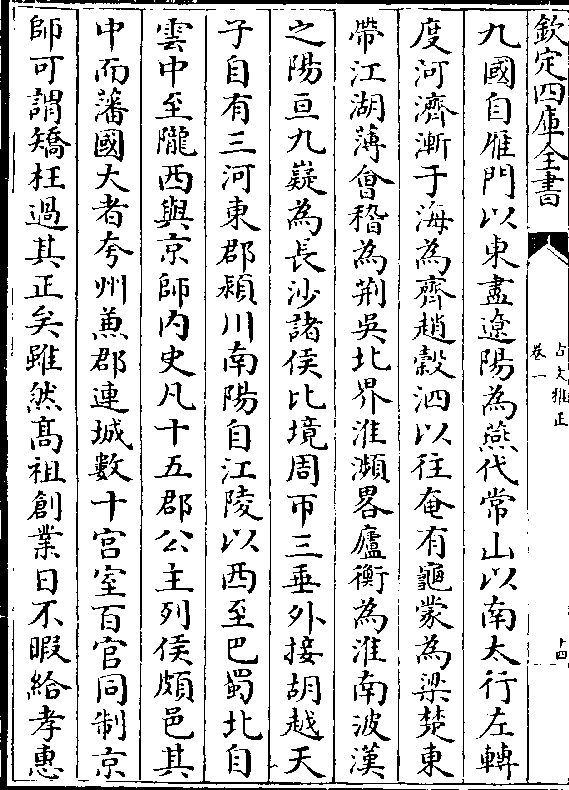 欽定四庫全書
古文雅正
卷一
十四
九國自雁門以東盡遼陽為燕代常山以南太行左轉
度河濟漸于海為齊趙穀泗以往奄有龜蒙為梁楚東
帶江湖薄會稽為荆吳北界淮瀕畧廬衡為淮南波漢
之陽亘九嶷為長沙諸侯比境周帀三垂外接胡越天
子自有三河東郡潁川南陽自江陵以西至巴蜀北自
雲中至隴西與京師内史凡十五郡公主列侯頗邑其
中而藩國大者夸州兼郡連城數十宫室百官同制京
師可謂矯枉過其正矣雖然髙祖創業日不暇給孝惠